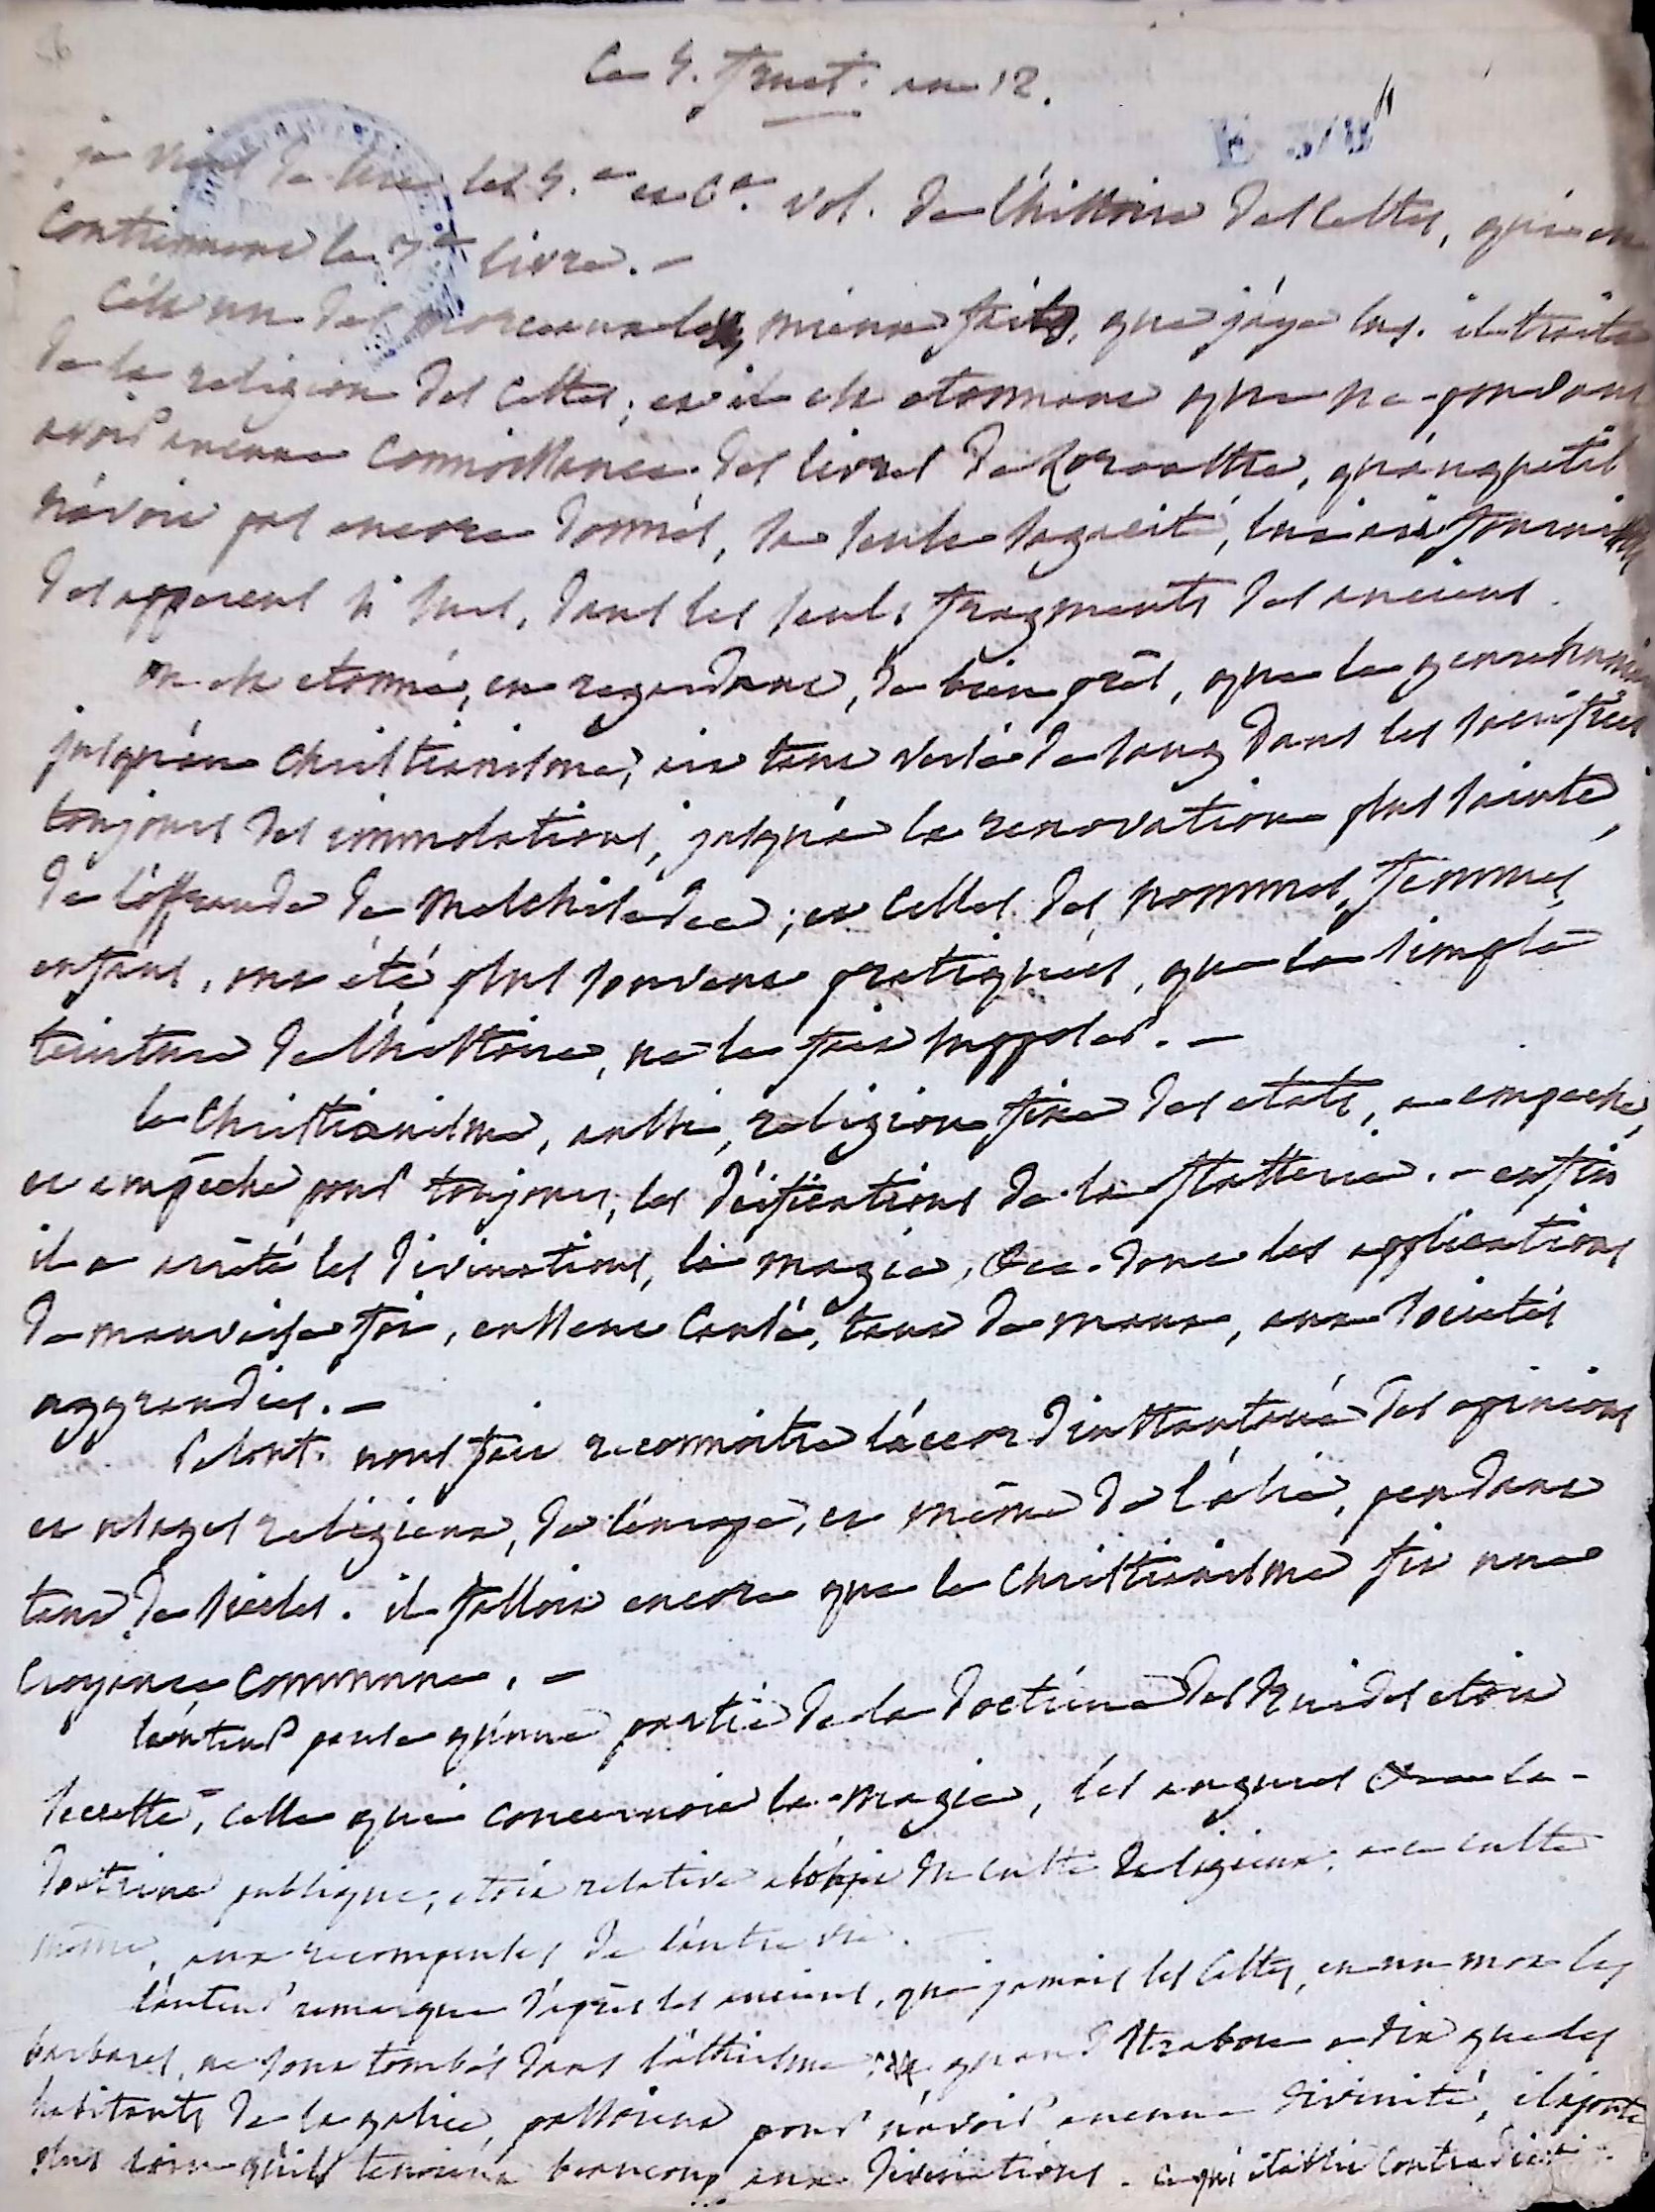 Le 5. fruct. an 12.
je viens de lire les 5.e et 6.e vol. de l'histoire des celtes, qui en
contiennent le 7.e livre. –
C'est un des morceaux les mieux faits, que j'aye lus. il traite
de la religion des Celtes; et il est etonnant que ne pouvant
avoir aucune connoissance des livres de Zoroastre, qu'anquetil
n'avoit pas encore donnés, sa seule sagacité, lui ait fourni
des apperçus si surs, dans les seuls fragments des anciens.
on est etonné, en regardant, de bien près, que le genre humain
jusqu'au christianisme, ait tant versé de sang dans les sacrifices
toujours des immolations, jusqu'à la renovation plus sainte,
de l'offrande de Melchisedec; et celles des hommes, femmes,
enfans, ont été plus souvent pratiquées, que la simple
teinture de l'histoire, ne le fait supposer. –
le Christianisme, aussi, religion fixe des etats, a empeché,
et empêche pour toujours, les déifications de la flatterie. – enfin
il a arrêté les divinations, la magie, &ca. dont les applications
de mauvaise foi, eussent causé, tant de maux, aux societés
aggrandies. –
Pelout. nous fait reconnoitre l'accord instantané des opinions
et usages religieux, de l'europe, et même de l'asie, pendant
tant de siecles. il falloit encore que le christianisme fit une
croyance commune. –
l'auteur pense qu'une partie de la doctrine des Druides etoit
secrette, celle qui concernoit la magie, les augures &ca la
doctrine publique, etoit relative à l'objet du culte religieux, a ce culte
même, aux recompenses de l'autre vie. –
l'auteur remarque d'après les anciens, que jamais les Celtes, en un mot les
barbares, ne sont tombés dans l'athéisme quand Strabon a dit que les
habitants de la galice, passoient pour n'avoir aucune divinité, il ajoute
plus loin qu'ils tenoient beaucoup aux divinations. ce qui établit contradiction.